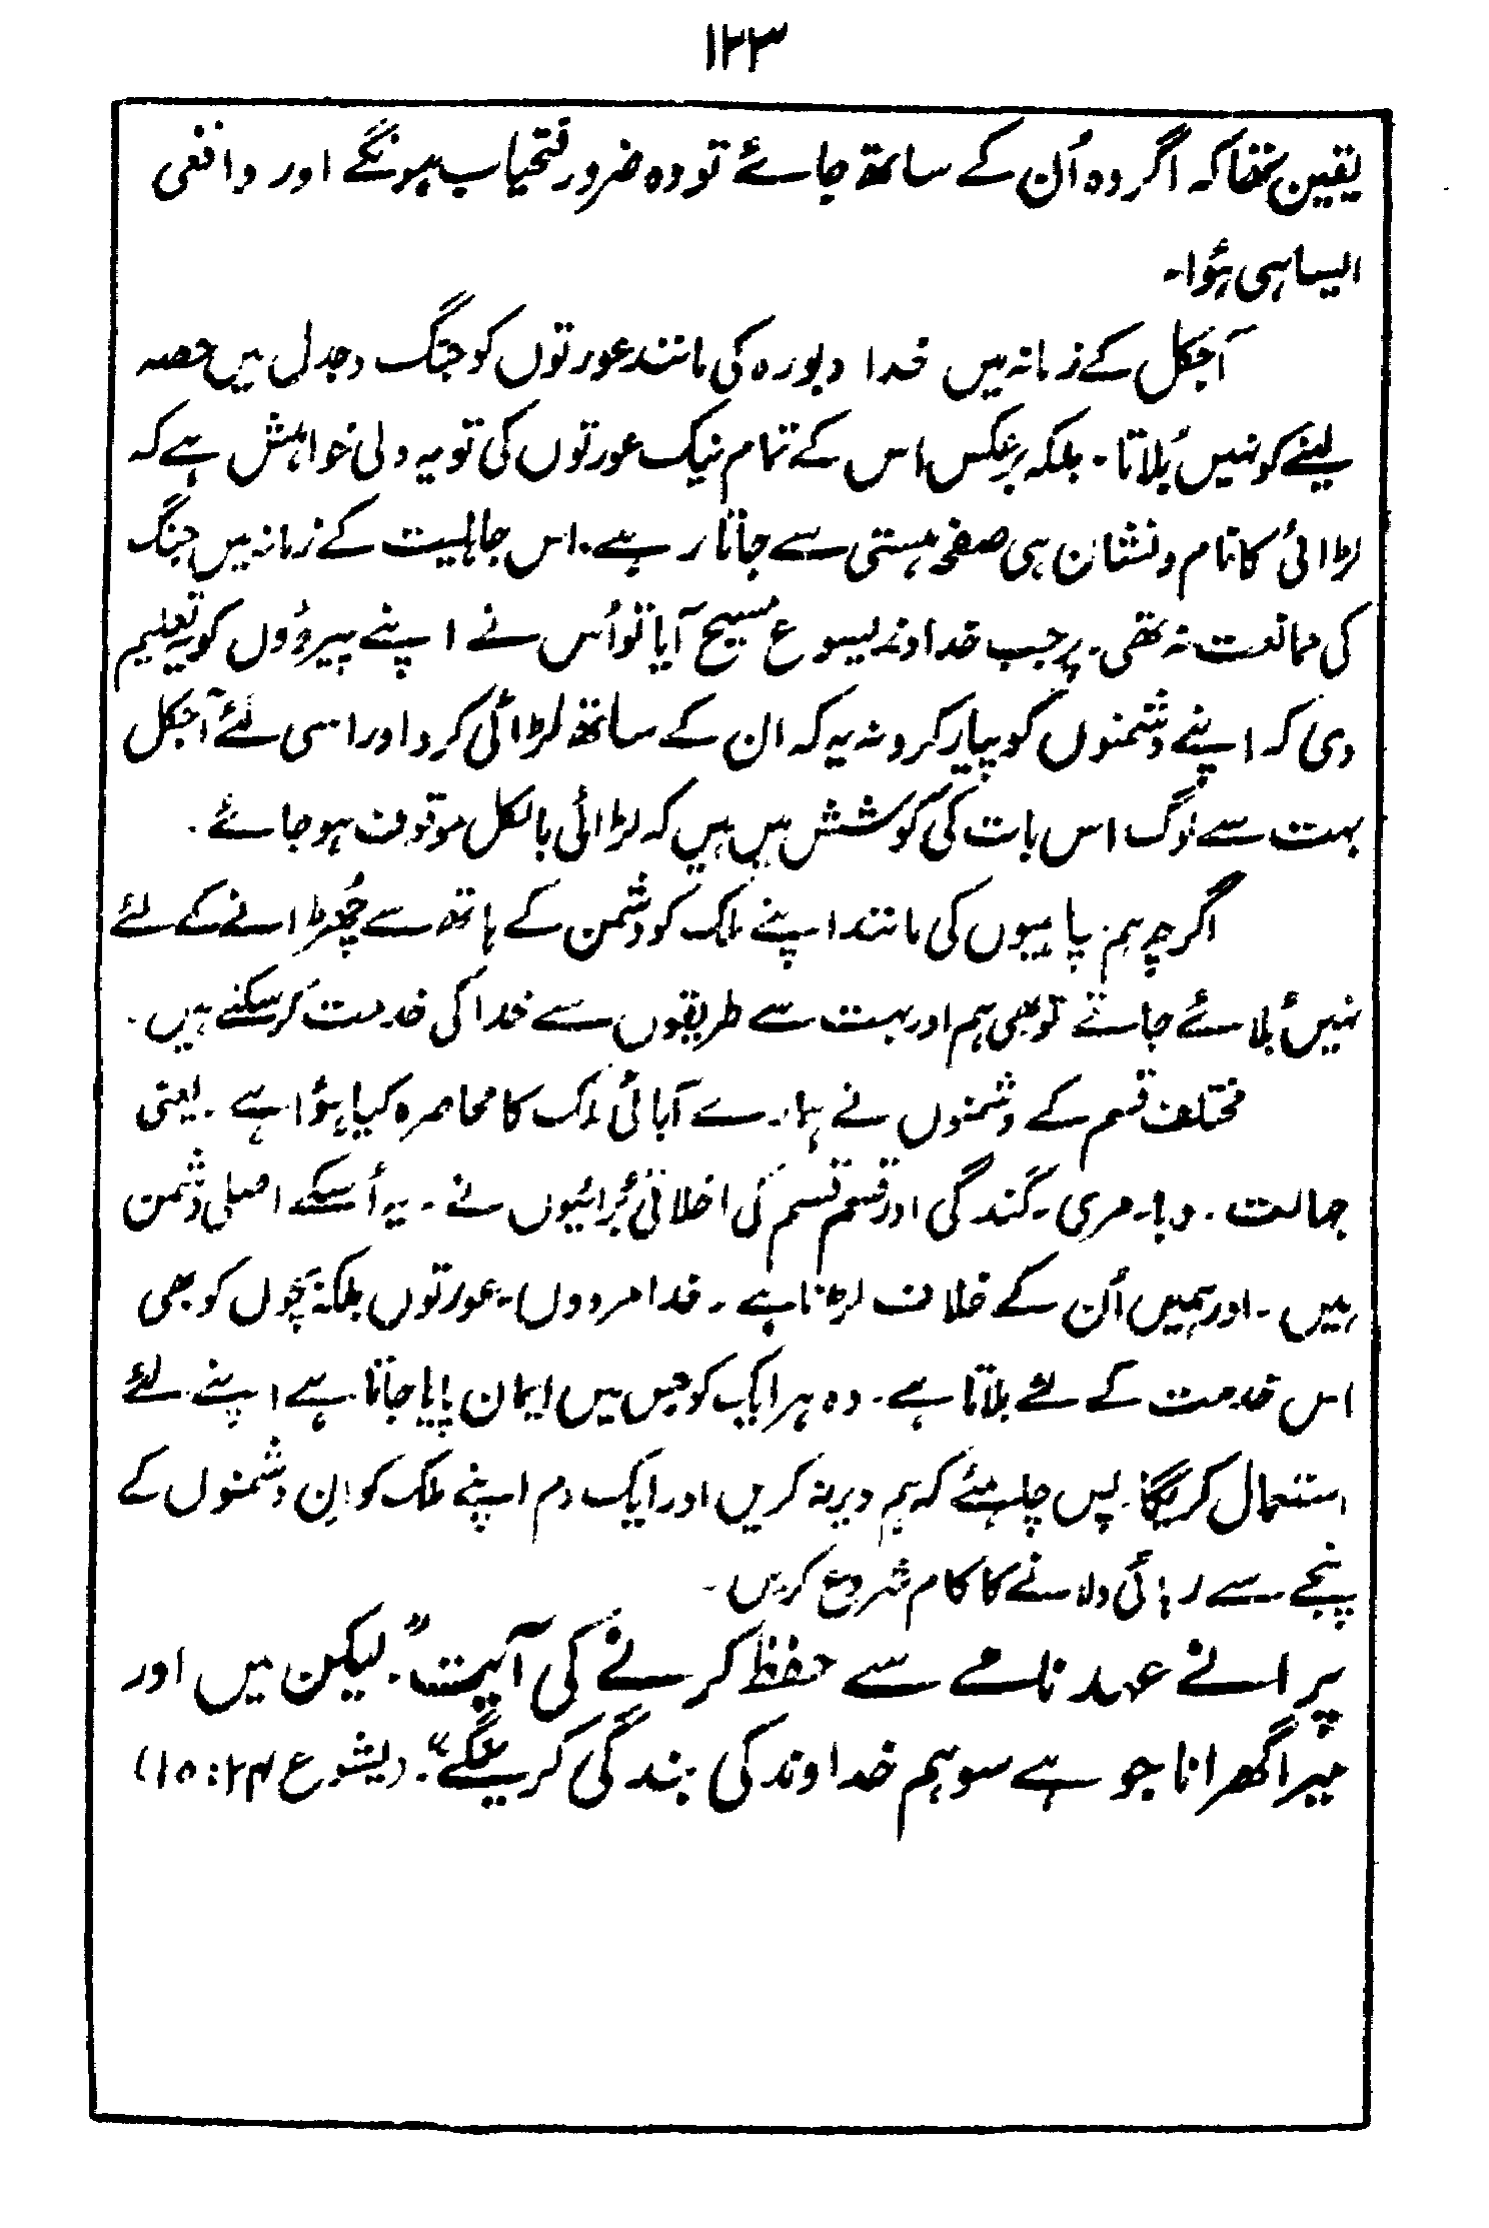 ۱۲۳
یقین تھا کہ اگر وہ اُن کے ساتھ جائے تو وہ ضرور فتحیاب ہونگے اور واقعی
ایسا ہی ہؤا۔
آجکل کے زمانہ میں خدا دبورہ کی مانند عورتوں کو جنگ و جدل میں حصہ
لینے کو نہیں بُلاتا۔ بلکہ برعکس اس کے تمام نیک عورتوں کی تو یہ دلی خواہش ہے کہ
لڑائی کا نام و نشان ہی صفحہ ہستی سے جاتا رہے۔ اس جاہلیت کے زمانہ میں جنگ
کی ممانعت نہ تھی۔ پر جب خداوند یسوع مسیح آیا تو اُس نے اپنے پیروؤں کو یہ تعلیم
دی کہ اپنے دشمنوں کو پیار کرو نہ یہ کہ ان کے ساتھ لڑائی کرو اور اسی لئے آجکل
بہت سے لوگ اس بات کی کوشش میں ہیں کہ لڑائی بالکل موقوف ہو جائے۔
اگرچہ ہم سپاہیوں کی مانند اپنے ملک کو دشمن کے ہاتھ سے چُھڑانے کے لئے
نہیں بُلائے جاتے تو بھی ہم اور بہت سے طریقوں سے خدا کی خدمت کر سکتے ہیں۔
مختلف قسم کے دشمنوں نے ہمارے آبائی ملک کا محاصرہ کیا ہؤا ہے۔ یعنی
جہالت۔ وبا۔ مری۔ گندگی اور قسم قسم کی اخلاقی بُرائیوں نے۔ یہ اُسکے اصلی دشمن
ہیں۔ اور ہمیں اُن کے خلاف لڑنا ہے۔ خدا مردوں۔ عورتوں بلکہ بچّوں کو بھی
اس خدمت کے لئے بلاتا ہے۔ وہ ہر ایک کو جس میں ایمان پایا جاتا ہے اپنے لئے
استعمال کریگا۔ پس چاہئے کہ ہم دیر نہ کریں اور ایک دم اپنے ملک کو اِن دشمنوں کے
پنجے سے رہائی دلانے کا کام شروع کریں۔
پرانے عہد نامے سے حفظ کرنے کی آیت: "لیکن میں اور
میرا گھرانا جو ہے سو ہم خداوند کی بندگی کرینگے"۔ (یشوع ۲۴:۱۵)